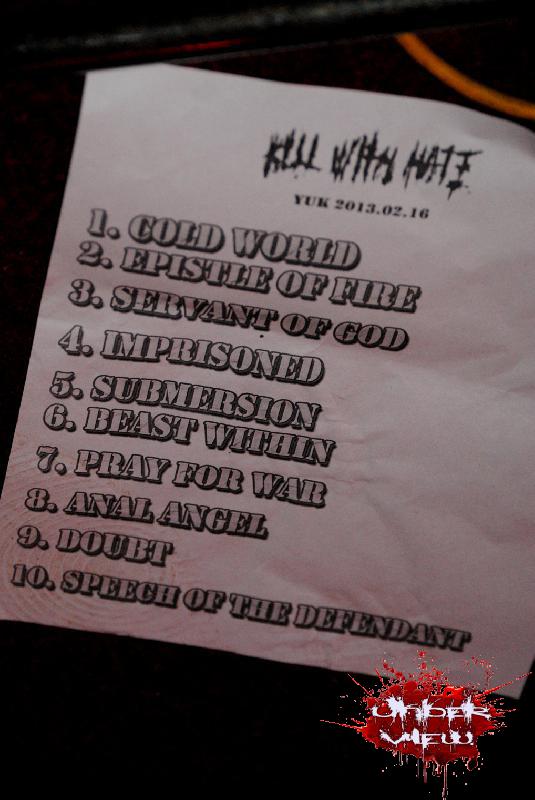 KILL WITH HATE
YUK 2013.02.16
1. COLD WORLD
2. EPISTLE OF FIRE
3. SERVANT OF GOD
4. IMPRISONED
5. SUBMERSION
6. BEAST WITHIN
7. PRAY FOR WAR
8. ANAL ANGEL
9. DOUBT
10. SPEECH OF THE DEFENDANT
UNDER
VIEW